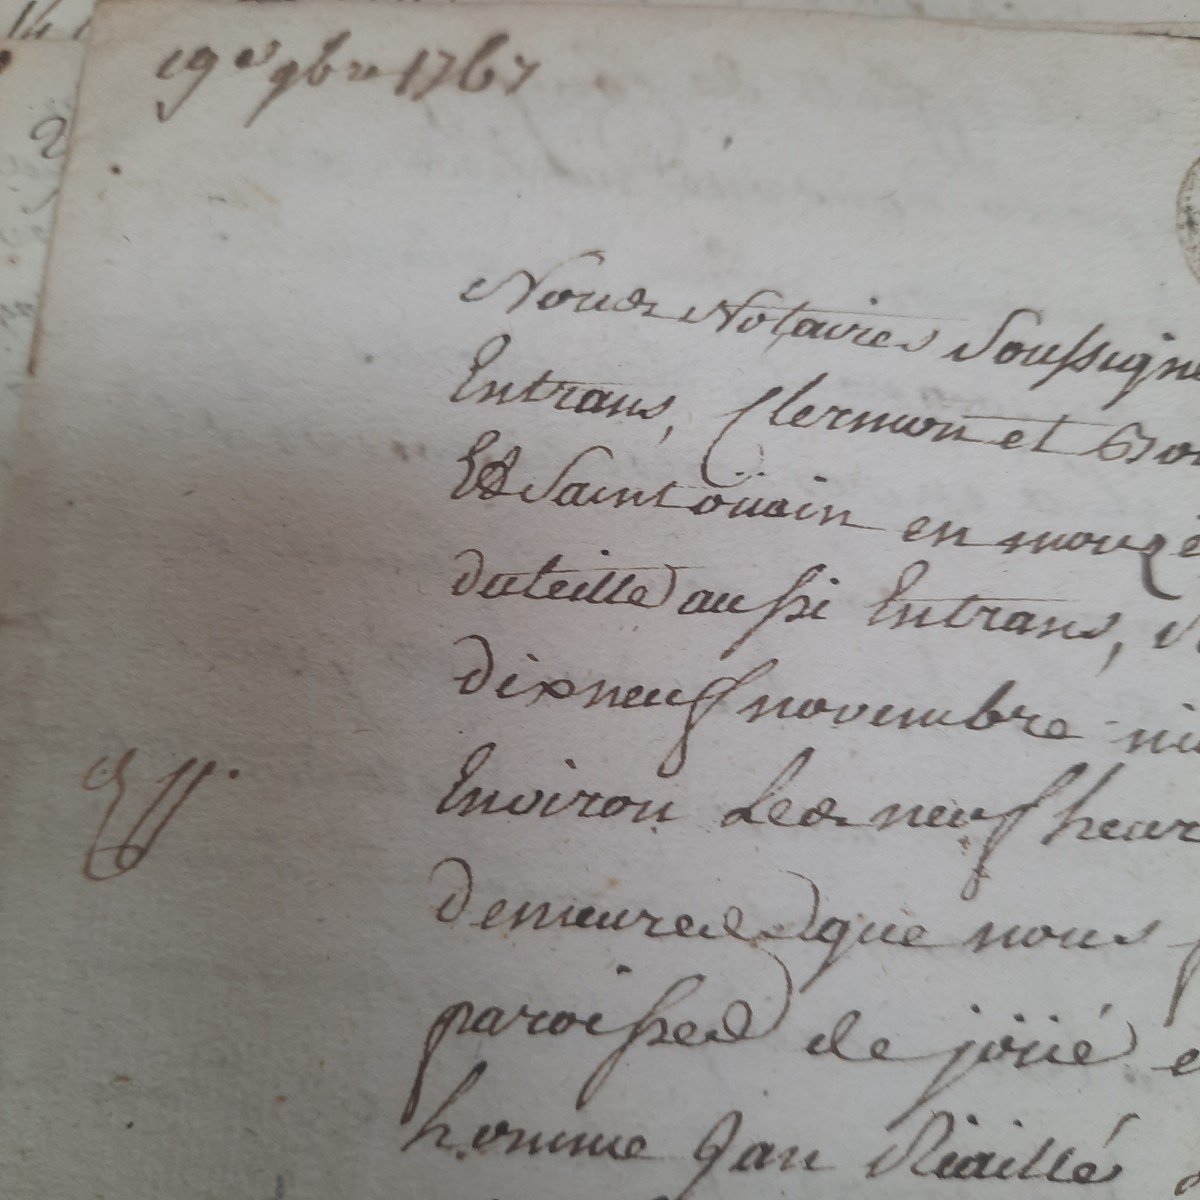 19e 9bre 1767
Nous Notaires Soussigné
Entrans, Clermon et
Et Saint oüain en mouzei
dateille aussi Entrans,
dix neuf novembre mi
Environ Les neuf heur
demeures que nous p
paroisse de joüé e
homme Jan Riaillé